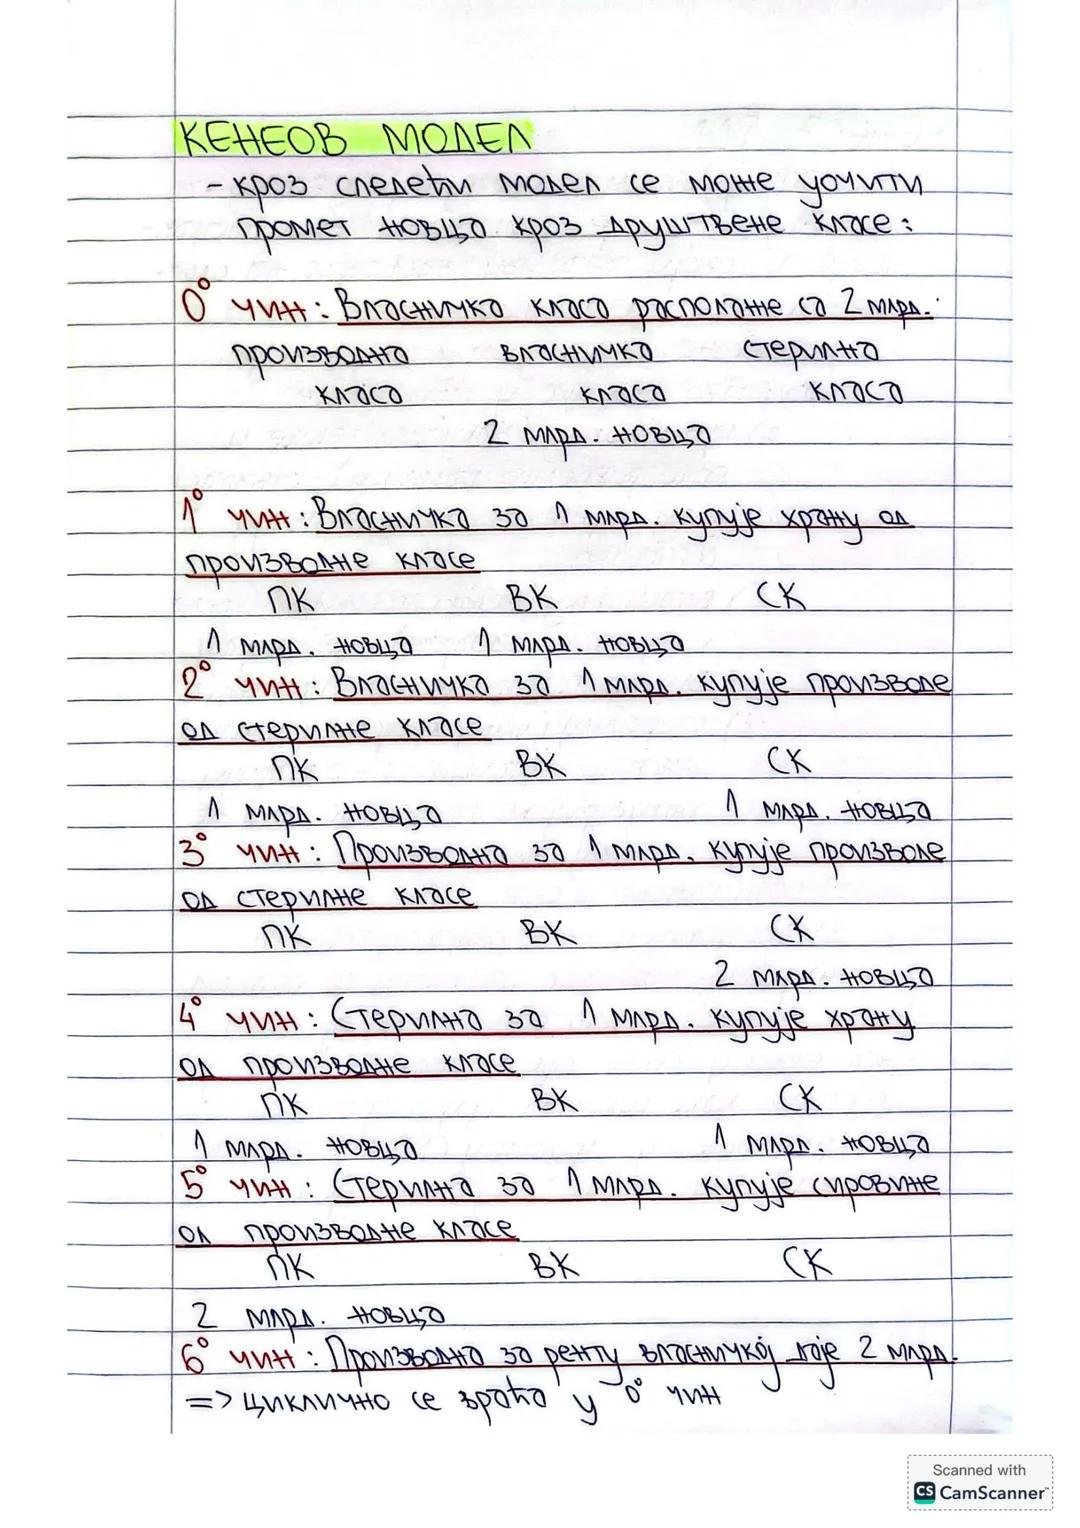 КЕНЕОВ МОДЕЛ
- кроз следећи модел се може уочити
промет новца кроз друштвене класе:
0° чин: Власничка класа располаже са 2 млрд.:
производна власничка стерилна
класа класа класа
2 млрд. новца
1° чин: Власничка за 1 млрд. купује храну од
производне класе
ПК ВК СК
1 млрд. новца 1 млрд. новца
2° чин: Власничка за 1 млрд. купује производе
од стерилне класе
ПК ВК СК
1 млрд. новца 1 млрд. новца
3° чин: Производна за 1 млрд. купује производе
од стерилне класе
ПК ВК СК
2 млрд. новца
4° чин: Стерилна за 1 млрд. купује храну
од производне класе
ПК ВК СК
1 млрд. новца 1 млрд. новца
5° чин: Стерилна за 1 млрд. купује сировине
од производне класе
ПК ВК СК
2 млрд. новца
6° чин: Производна за ренту власничкој даје 2 млрд.
=> циклично се враћа у 0° чин
Scanned with
CS CamScanner